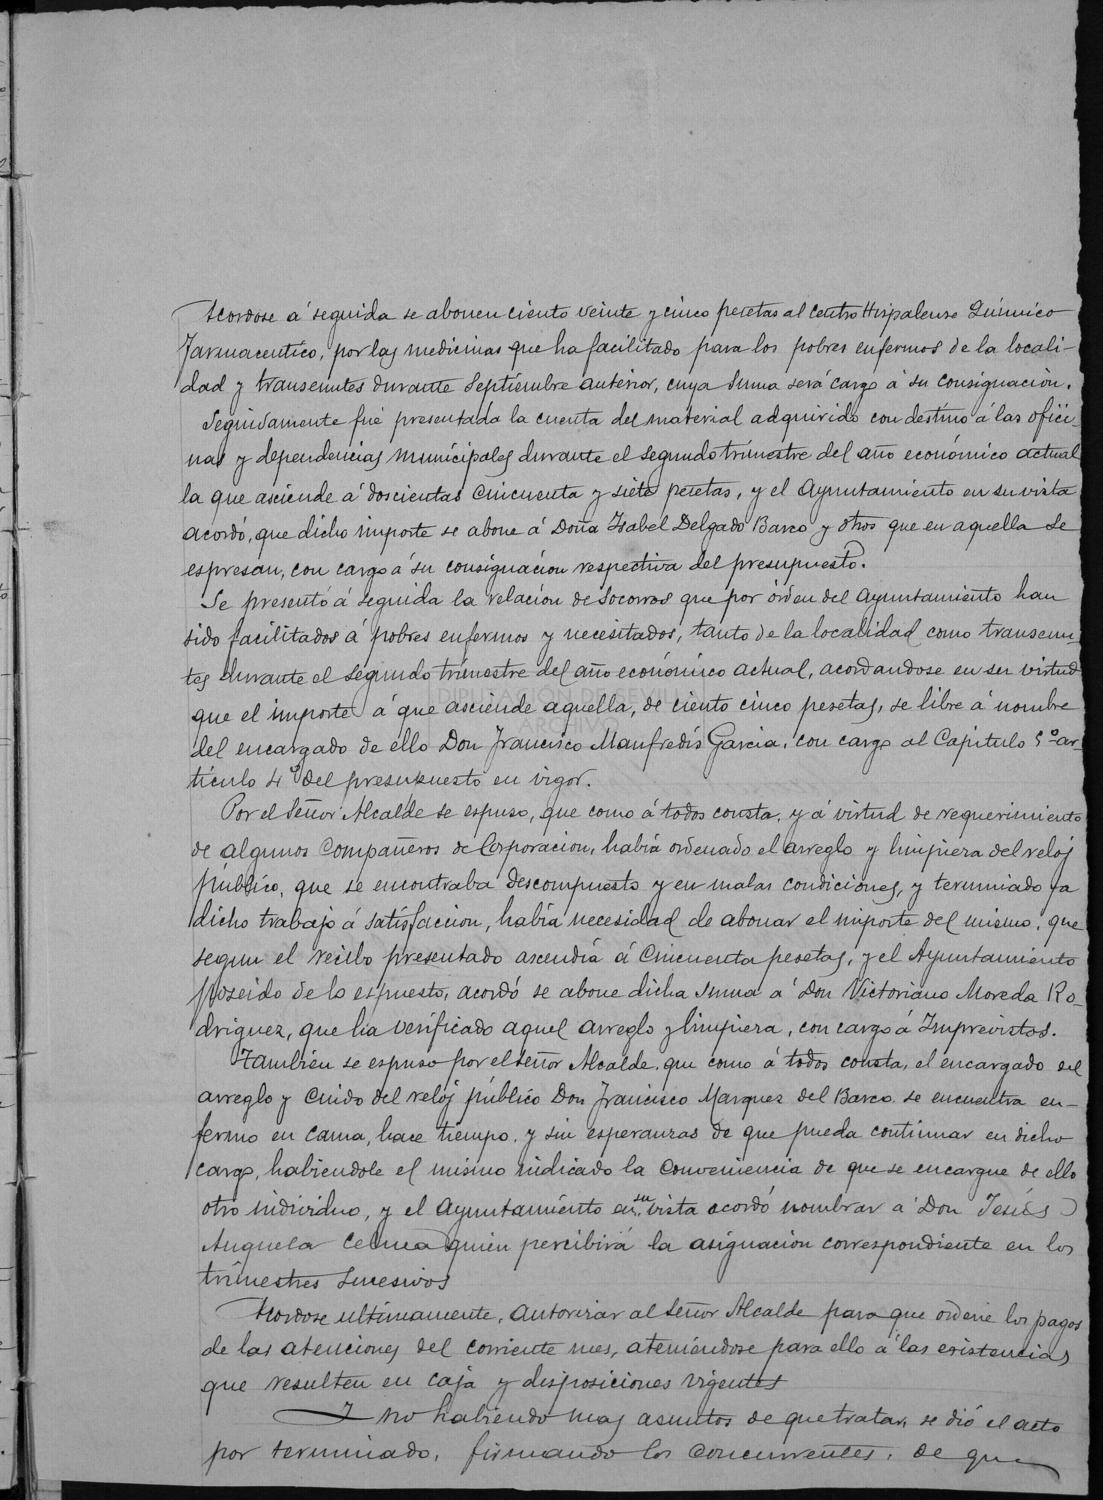 Acordose á seguida se abonen ciento veinte y cinco pesetas al Centro Hispalense Químico
Farmaceutico, por las medicinas que ha facilitado para los pobres enfermos de la locali-
dad y transeuntes durante Septiembre anterior, cuya suma será cargo á su consignación.
Seguidamente fué presentada la cuenta del material adquirido con destino á las ofici-
nas y dependencias municipales durante el segundo trimestre del año económico actual
la que asciende á doscientas cincuenta y siete pesetas, y el Ayuntamiento en su vista
acordó, que dicho importe se abone á Doña Isabel Delgado Barco y otros que en aquella se
espresan, con cargo á su consignación respectiva del presupuesto.
Se presentó á seguida la relación de socorros que por órden del Ayuntamiento han
sido facilitados á pobres enfermos y necesitados, tanto de la localidad como transeun-
tes durante el segundo trimestre del año económico actual, acordandose en su virtud
que el importe á que asciende aquella, de ciento cinco pesetas, se libre á nombre
DIPUTACIÓN DE SEVILLA
ARCHIVO
del encargado de ello Don Francisco Manfredis Garcia, con cargo al Capitulo 5º ar-
tículo 4º del presupuesto en vigor.
Por el Señor Alcalde se espuso, que como á todos consta, y á virtud de requerimiento
de algunos compañeros de Corporacion, había ordenado el arreglo y limpiera del reloj
público, que se encontraba descompuesto y en malas condiciones, y terminado ya
dicho trabajo á satisfacion, había necesidad de abonar el importe del mismo, que
segun el recibo presentado ascendía á cincuenta pesetas, y el Ayuntamiento
poseido de lo espuesto, acordó se abone dicha suma a Don Victoriano Moreda Ro-
driguez, que ha verificado aquel arreglo y limpiera, con cargo á Imprevistos.
Tambien se espuso por el Señor Alcalde, que como á todos consta, el encargado del
arreglo y cuido del reloj público Don Francisco Marquez del Barco se encuentra en-
fermo en cama, hace tiempo, y sin esperanzas de que pueda continuar en dicho
cargo, habiendole el mismo indicado la conveniencia de que se encargue de ello
otro individuo, y el Ayuntamiento en su vista acordó nombrar a Don Jesús
quien percibirá la asignación correspondiente en los
trimestres sucesivos
Acordose ultimamente, autorizar al Señor Alcalde para que ordene los pagos
de las atenciones del corriente mes, ateniéndose para ello á las existencias
que resulten en caja y disposiciones vigentes
Y no habiendo mas asuntos de que tratar, se dió el acto
por terminado, firmando los concurrentes, de que